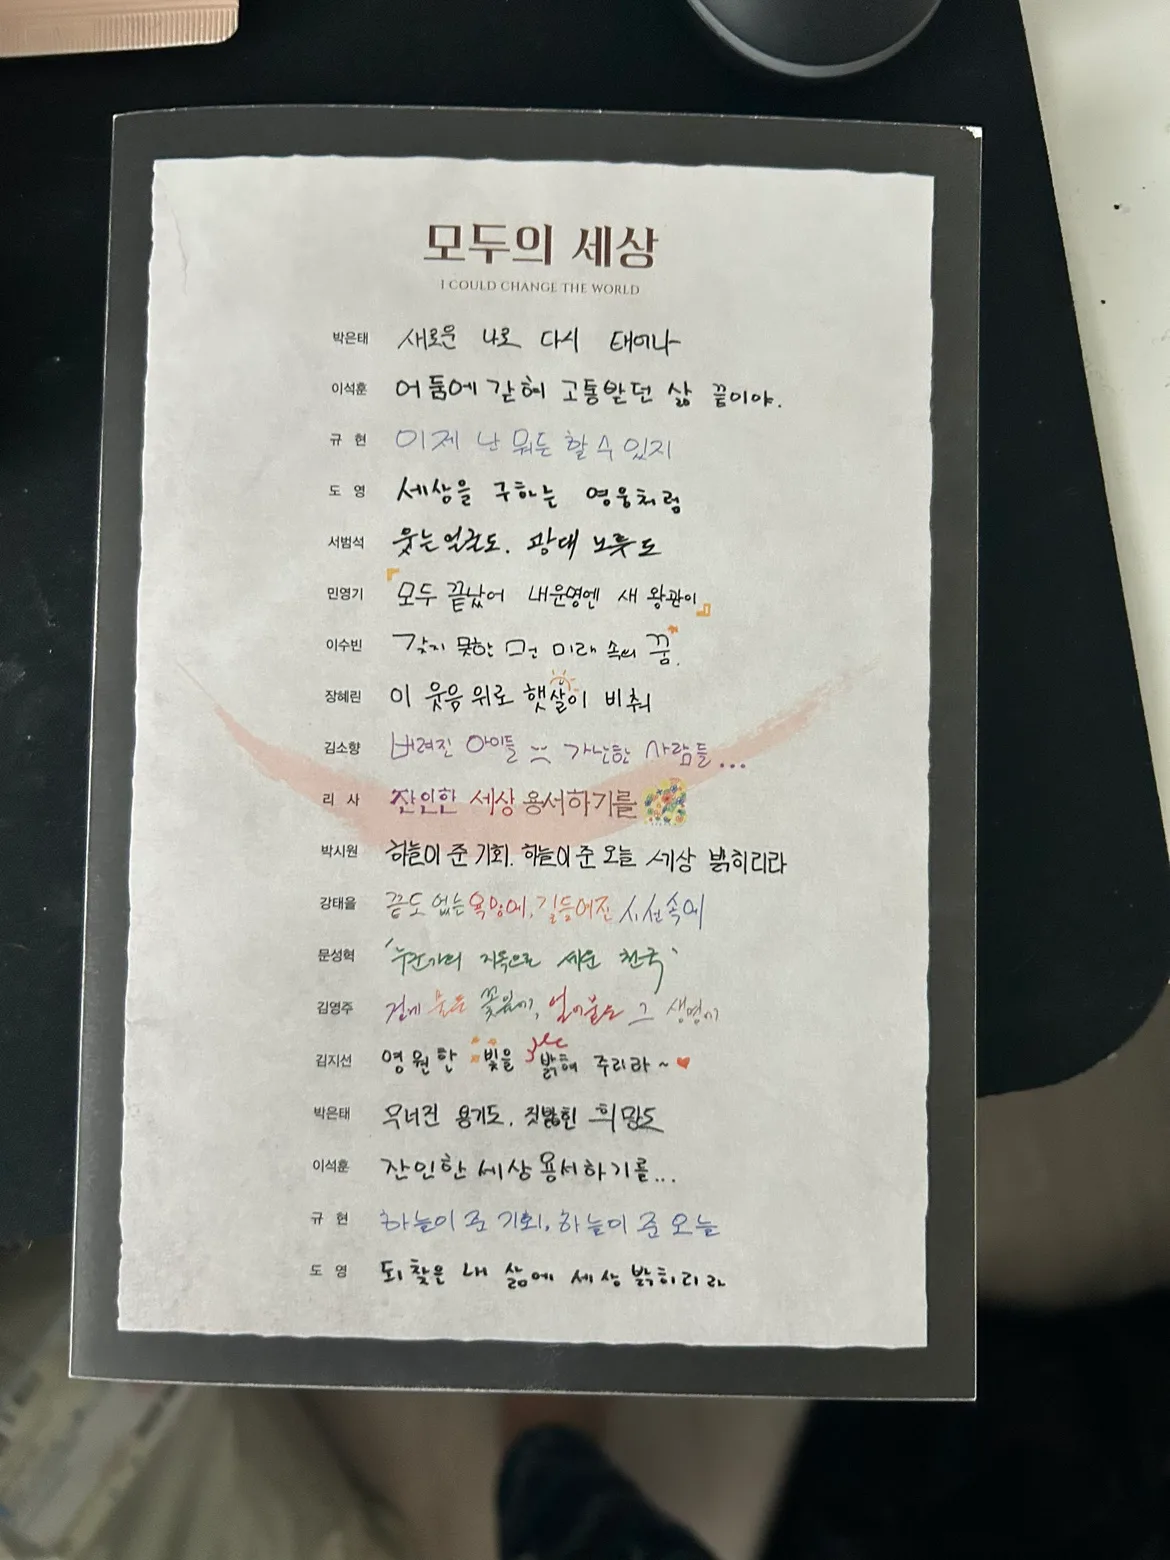 모두의 세상
I COULD CHANGE THE WORLD
박은태 새로운 나로 다시 태어나
이석훈 어둠에 갇혀 고통받던 삶 끝이야.
규 현 이제 난 뭐든 할 수 있지
도 영 세상을 구하는 영웅처럼
서범석 웃는 얼굴도. 광대 노릇도
민영기 『모두 끝났어 내운명엔 새 왕관이』
이수빈 갖지 못한 그건 미래 속의 꿈.
장혜린 이 웃음 위로 햇살이 비춰
김소향 버려진 아이들 가난한 사람들...
리 사 잔인한 세상 용서하기를
박시원 하늘이 준 기회. 하늘이 준 오늘 세상 밝히리라
강태을 끝도 없는 욕망에, 길들여진 시선속에
문성혁 '누군가의 지옥으로 세운 천국'
김영주 검게 물든 꽃잎이, 얼어붙은 그 생명이
김지선 영원한 빛을 밝혀 주리라~
박은태 무너진 용기도. 짓밟힌 희망도
이석훈 잔인한 세상 용서하기를...
규 현 하늘이 준 기회, 하늘이 준 오늘
도 영 되찾은 내 삶에 세상 밝히리라